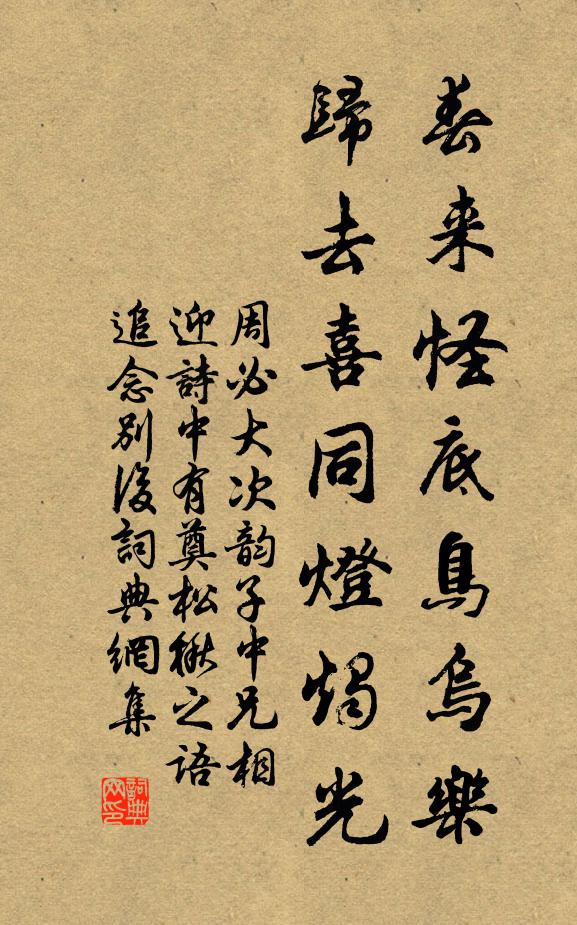 春来怪底鳥烏樂
歸去喜同燈燭光
周必大次韵子中兄相
迎詩中有奠松楸之語
追念别後詞典網集
詞典网印